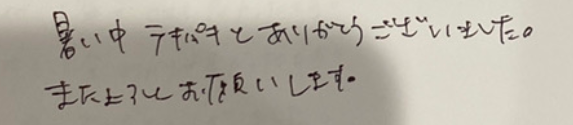 暑い中 テキパキと ありがとうございました。
またよろしくお願いします。